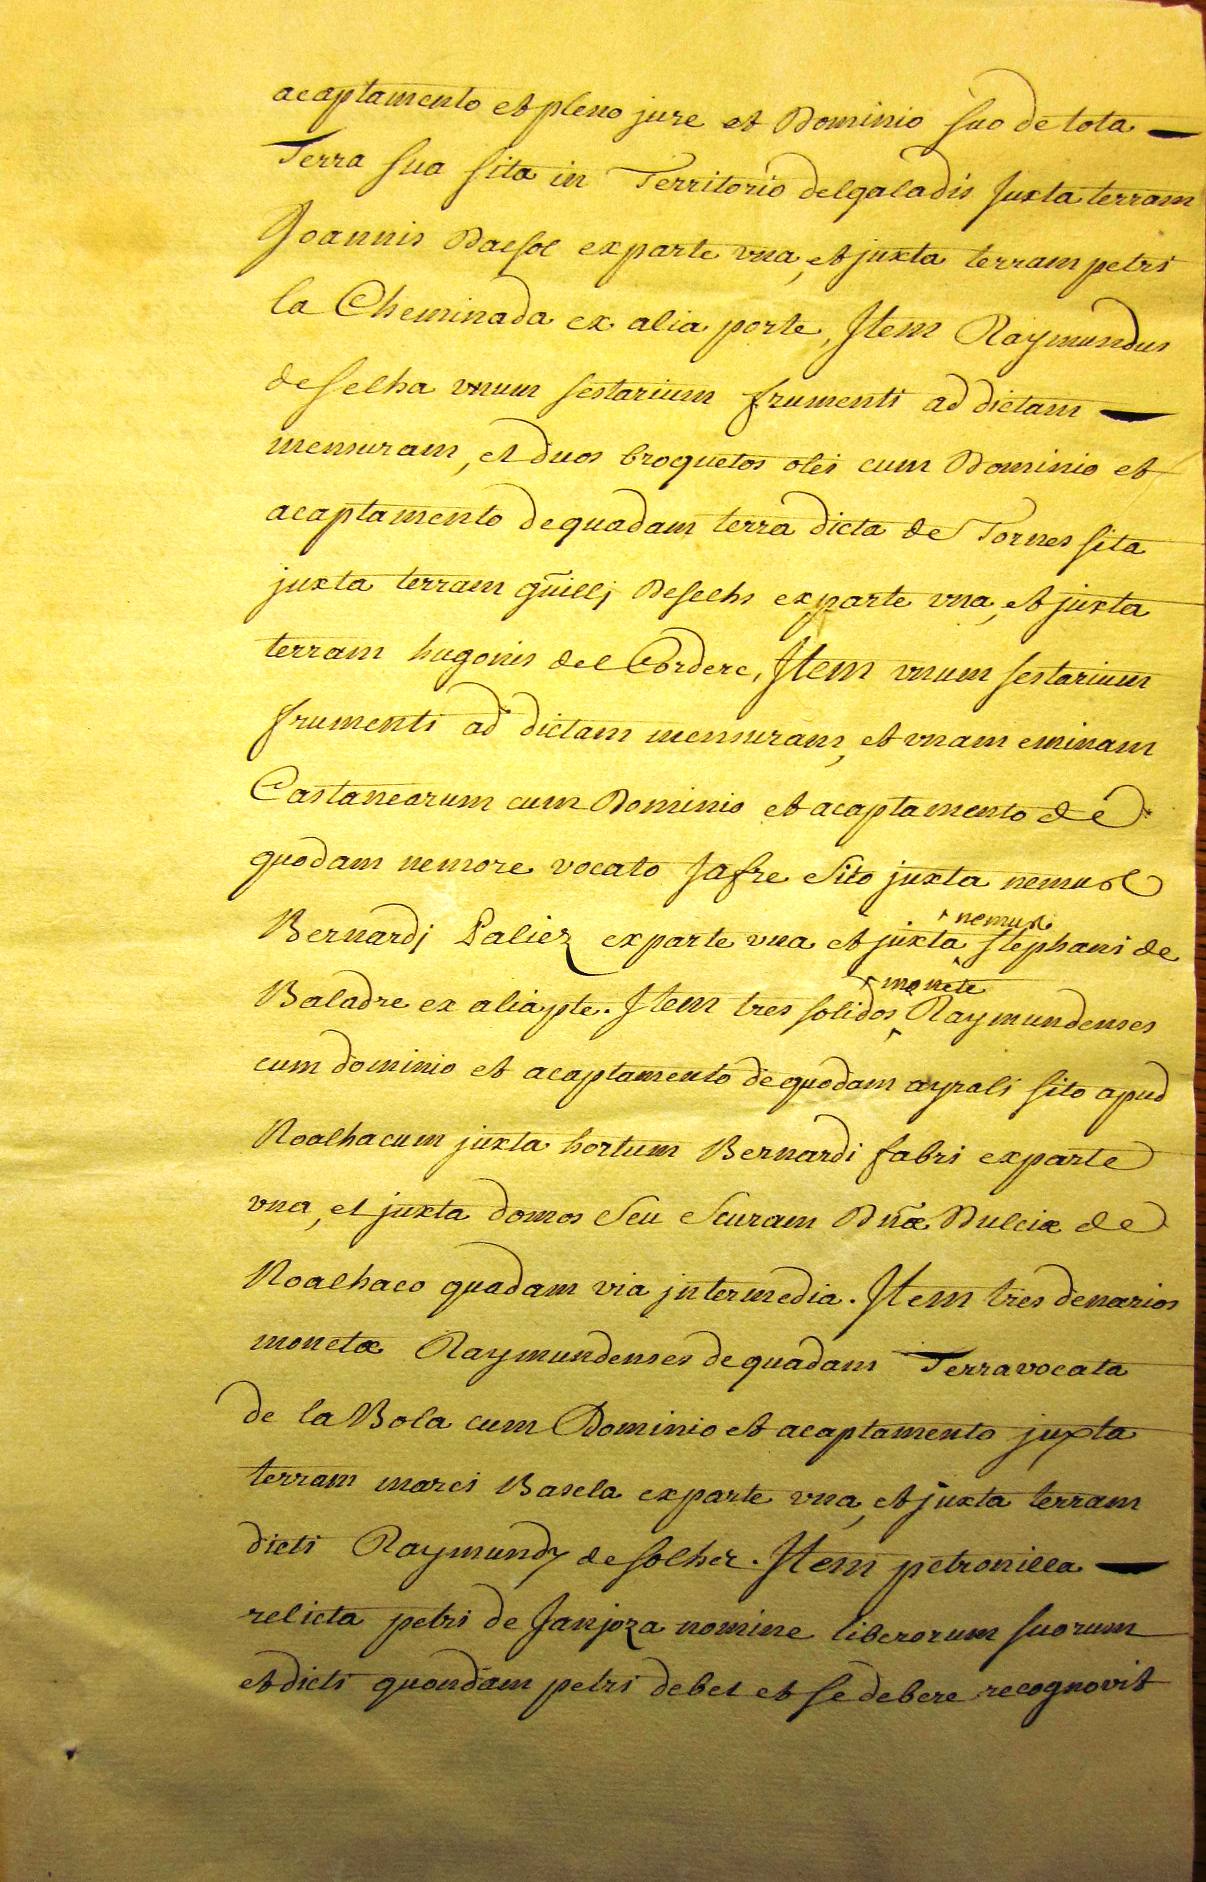 acaptamento et pleno jure et Dominio suo de tota
Terra sua sita in Territorio delgaladis juxta terram
Joannis Daesol ex parte vna, et juxta terram petri
la Cheminada ex alia parte, Item Raymundus
de selha vnum sestarium frumenti ad dictam
mensuram, et duos broquetos olei cum Dominio et
acaptamento de quadam terra dicta de Tornes sita
juxta terram guillj Deselhs ex parte vna, et juxta
terram hugonis del Corderc, Item vnum sestarium
frumenti ad dictam mensuram, et vnam eminam
Castanearum cum Dominio et acaptamento de
quodam nemore vocato Jafre sito juxta nemus
Bernardj Paliez ex parte vna et juxta nemus stephani de
Baladre ex alia pte. Item tres solidos monete Raymundenses
cum dominio et acaptamento de quodam ayrali sito apud
Roalhacum juxta hortum Bernardi fabri ex parte
vna, et juxta domos seu scuram Dnæ Dulciæ de
Roalhaco quadam via jntermedia. Item tres denarios
monetæ Raymundenses de quadam Terra vocata
de la Bola cum Dominio et acaptamento juxta
terram marci Basela ex parte vna, et juxta terram
dicti Raymundy de solher. Item petronilla
relicta petri de Janjoza nomine liberorum suorum
et dicti quondam petri debet et se debere recognovit